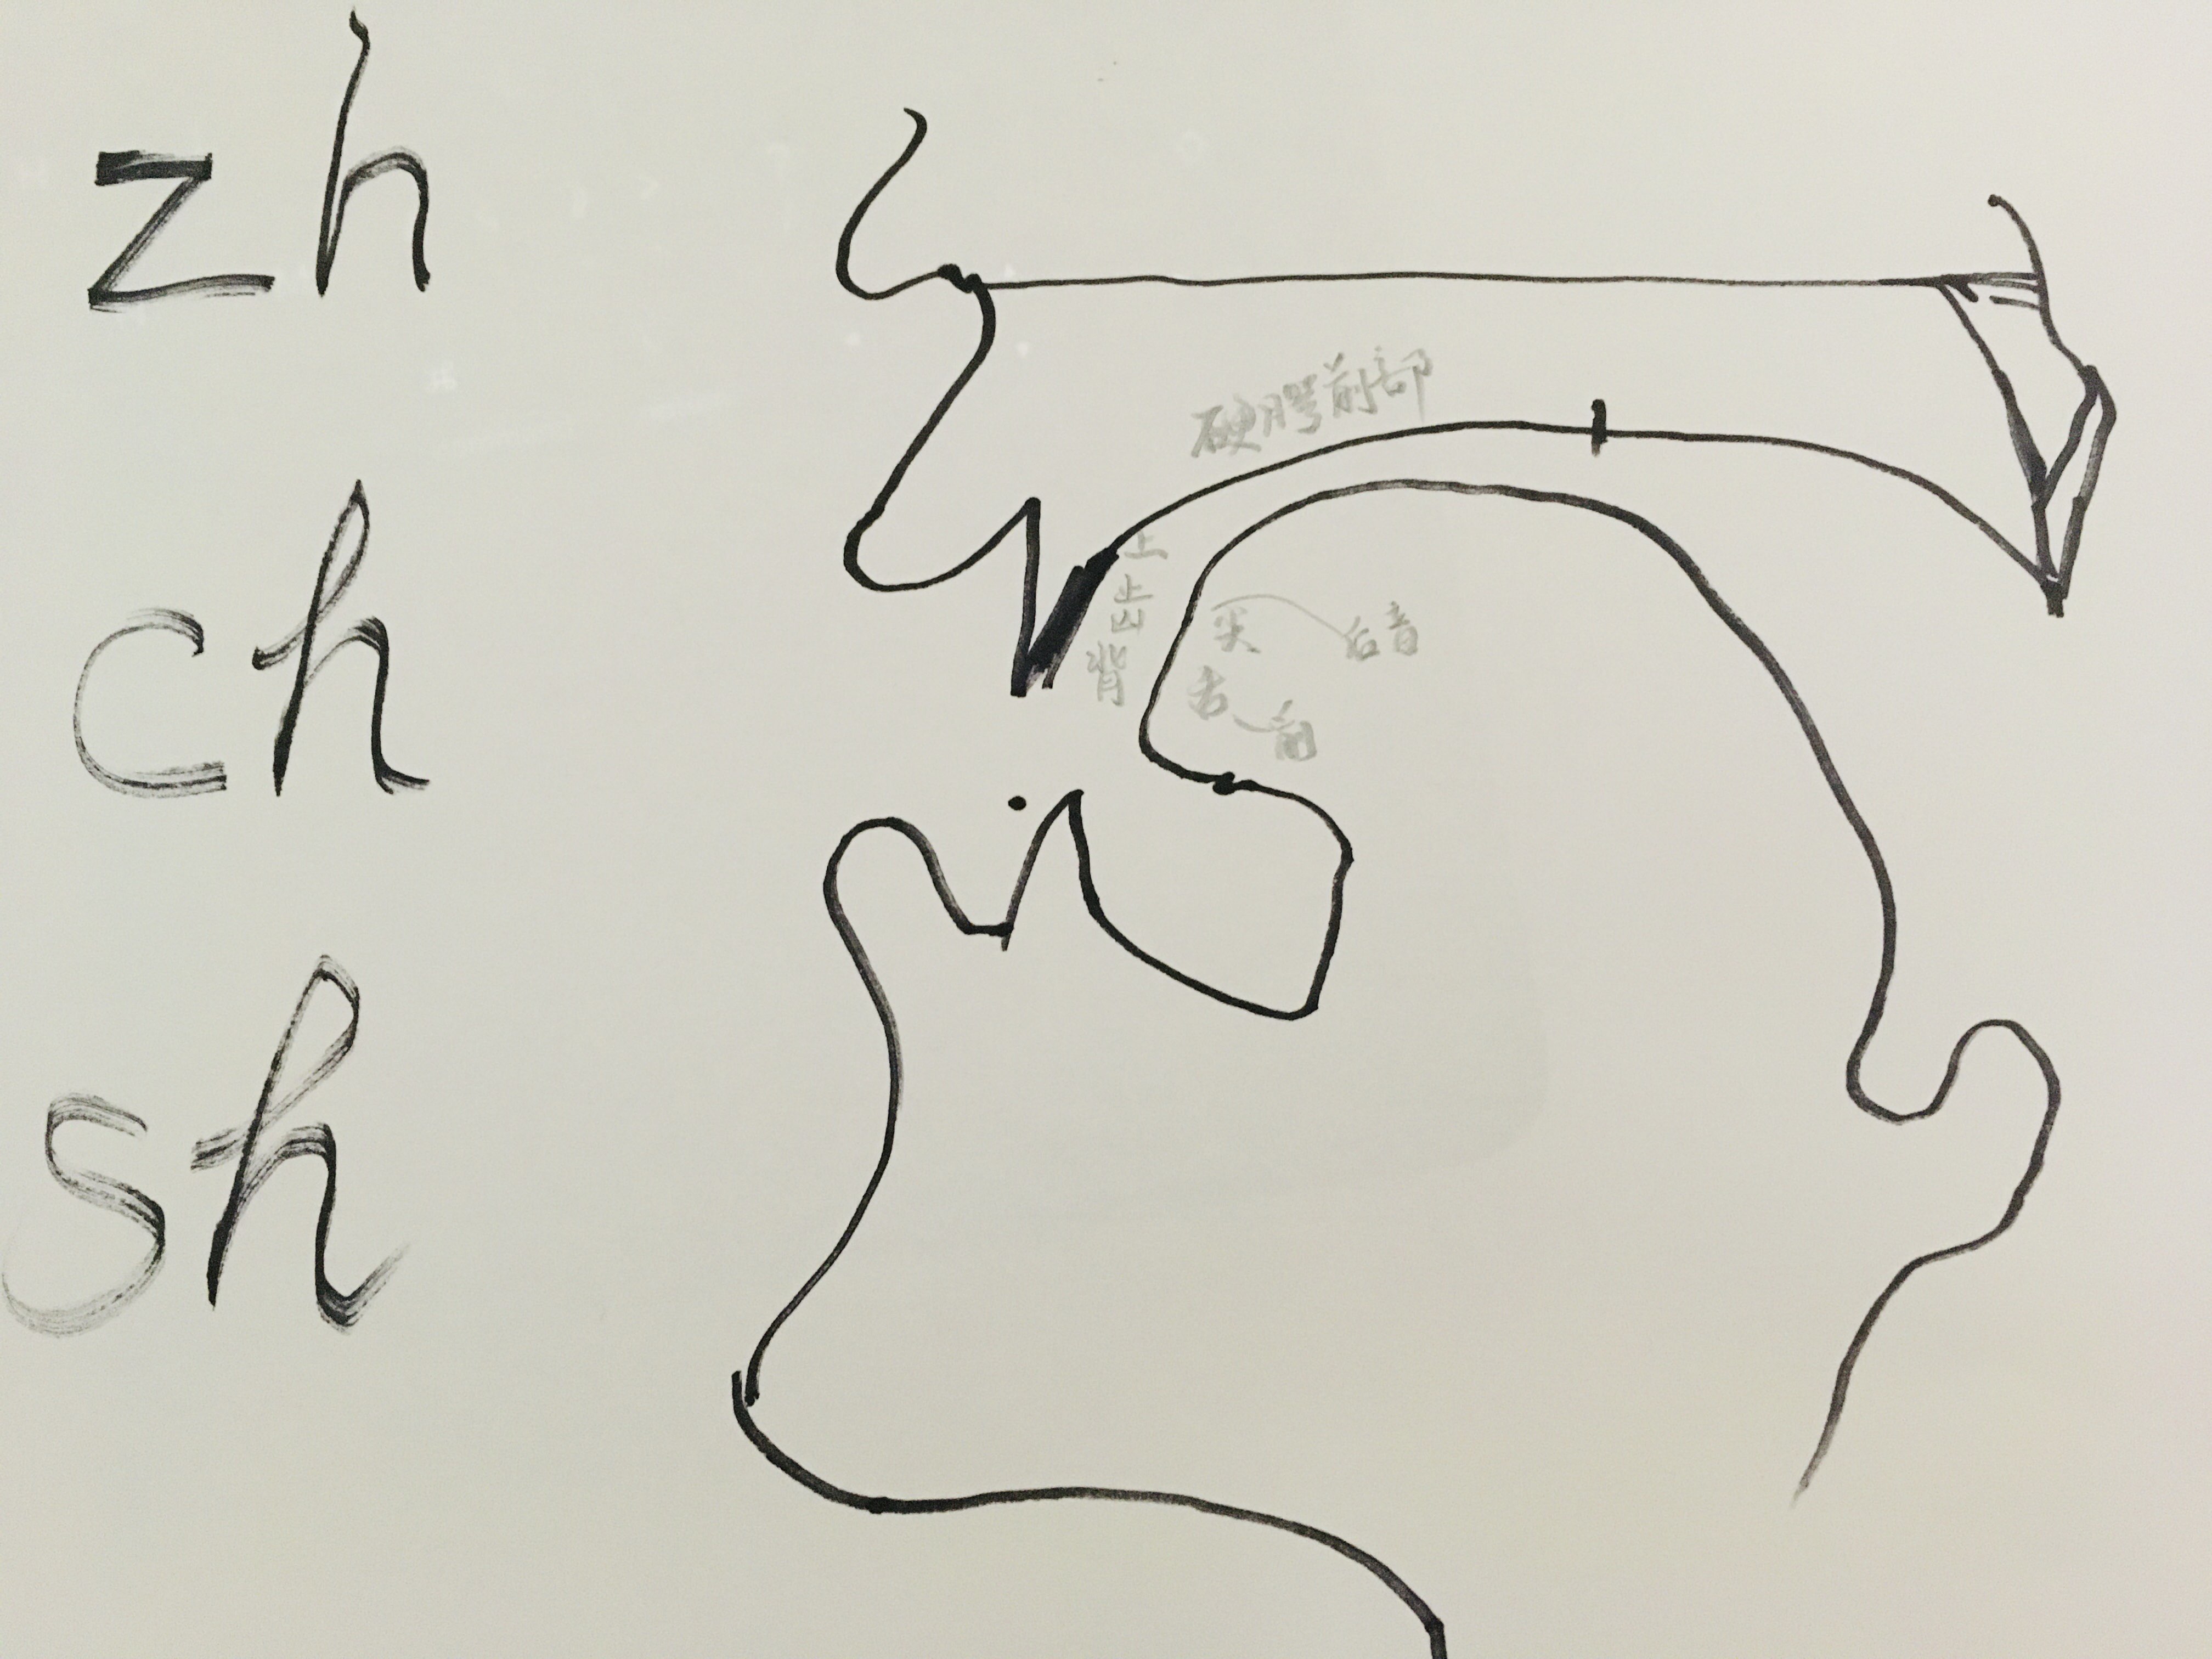 zh
ch
sh
硬腭前部
上
齿
背
尖
舌
前
后音